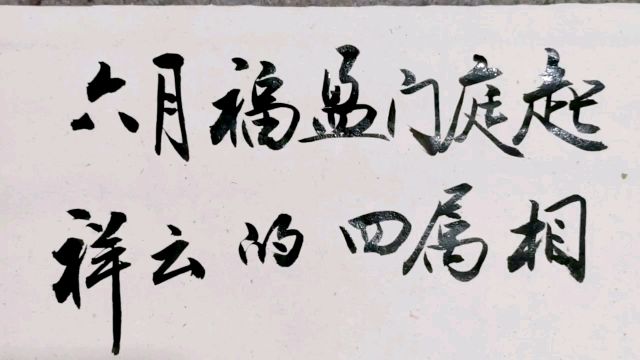 六月福盈门庭起
祥云的四属相